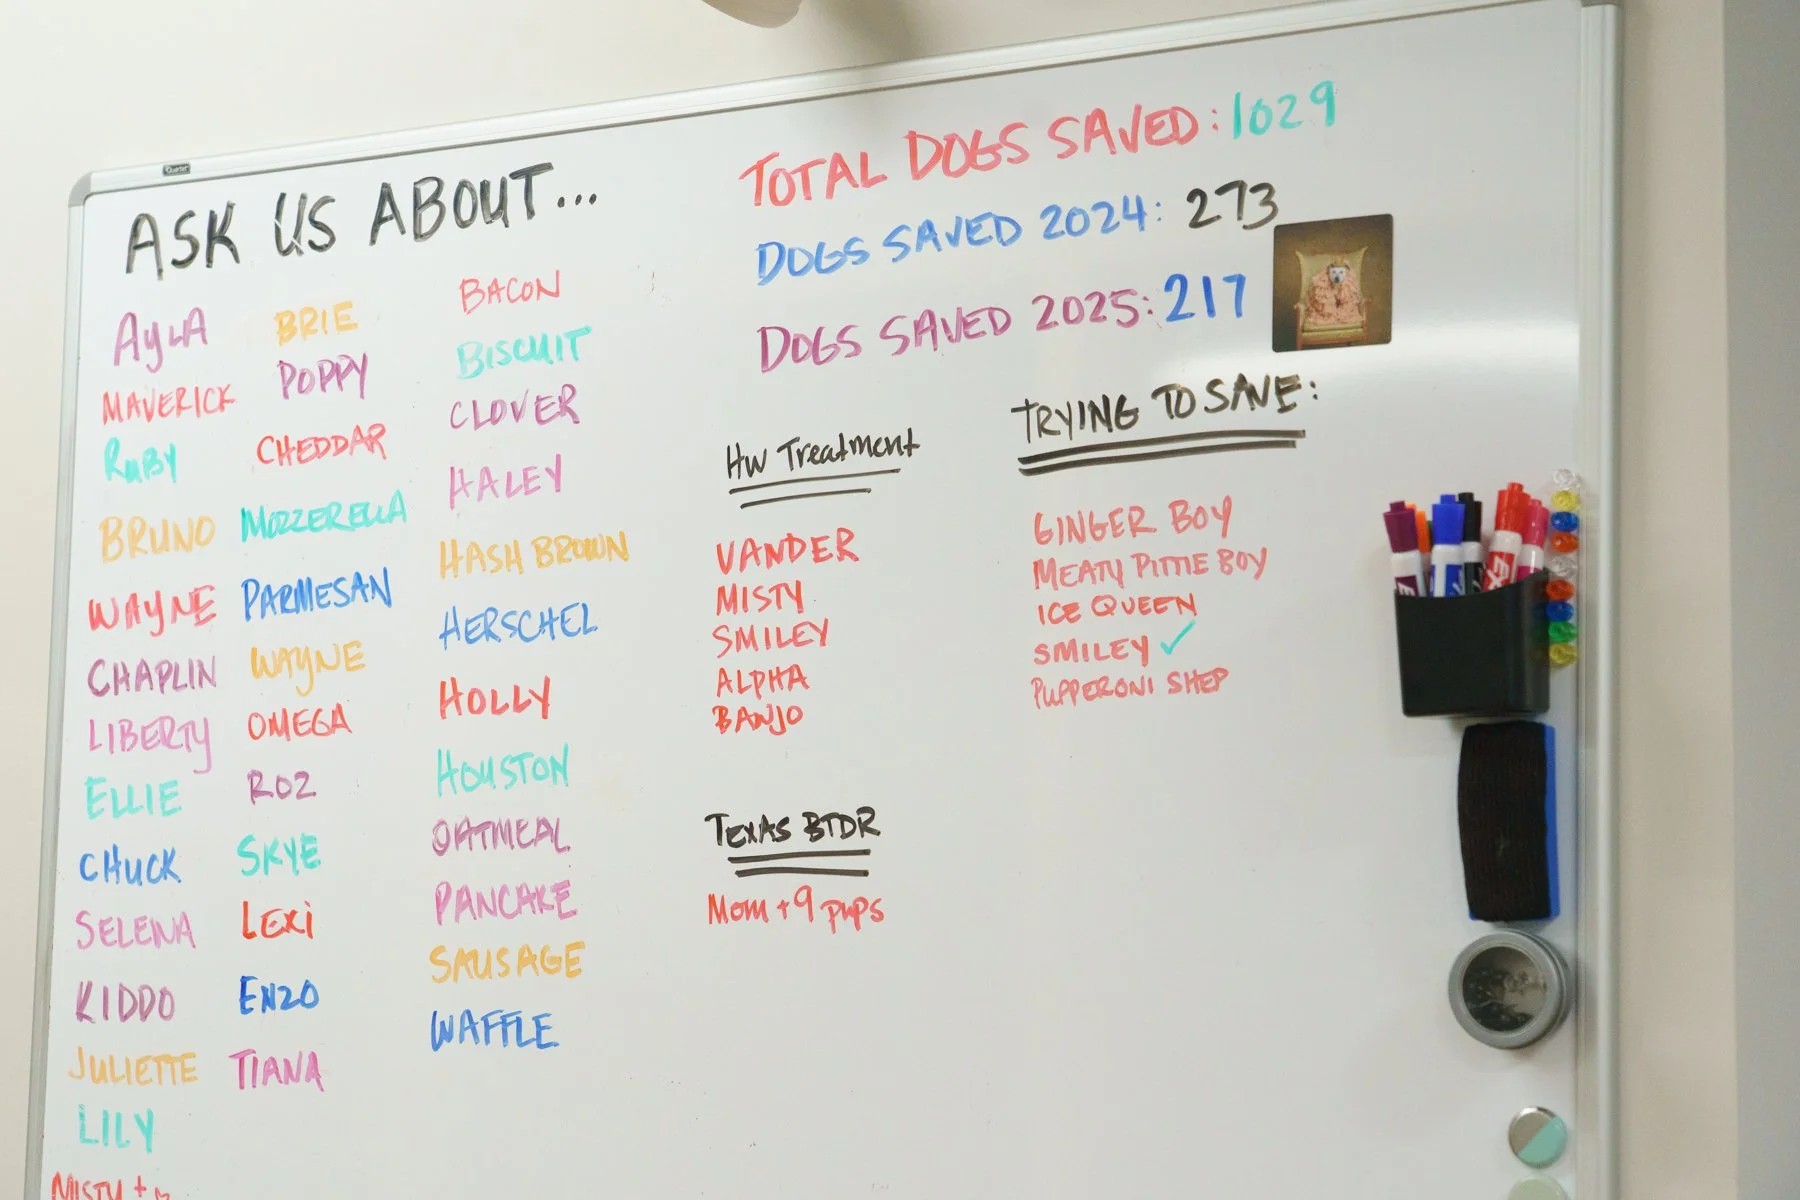 Quartet
ASK US ABOUT...
AYLA
MAVERICK
RUBY
BRUNO
WAYNE
CHAPLIN
LIBERTY
ELLIE
CHUCK
SELENA
KIDDO
JULIETTE
LILY
MISTY +
BRIE
POPPY
CHEDDAR
MOZZERELLA
PARMESAN
WAYNE
OMEGA
ROZ
SKYE
LEXi
ENZO
TIANA
BACON
BISCUIT
CLOVER
HALEY
HASH BROWN
HERSCHEL
HOLLY
HOUSTON
OATMEAL
PANCAKE
SAUSAGE
WAFFLE
TOTAL DOGS SAVED: 1029
DOGS SAVED 2024: 273
DOGS SAVED 2025: 217
HW Treatment
VANDER
MISTY
SMILEY
ALPHA
BANJO
TEXAS BTDR
Mom + 9 pups
TRYING TO SAVE:
GINGER BOY
MEATY PITTIE BOY
ICE QUEEN
SMILEY ✓
PUPPERONI SHEP